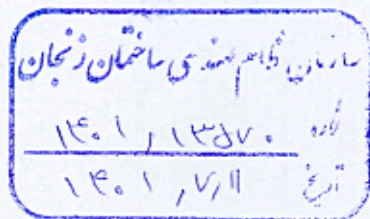 سازمان نظام مهندسی ساختمان زنجان
شماره ۱۴۰۱/۱۳۵۷۰
تاریخ ۱۴۰۱/۷/۱۱